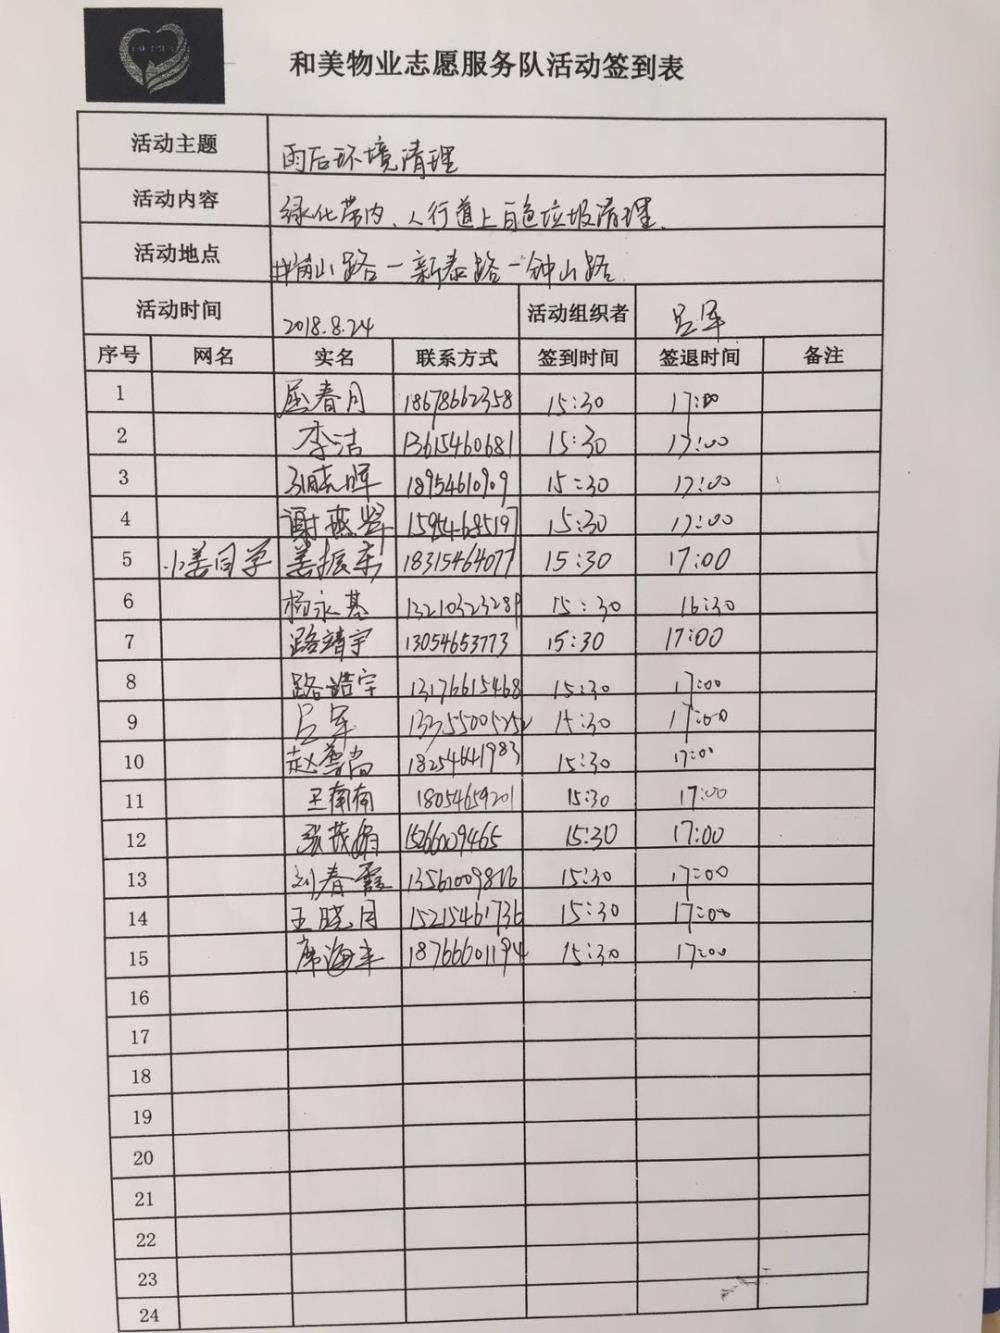 和美物业志愿服务队活动签到表
活动主题 雨后环境清理
活动内容 绿化带内、人行道上白色垃圾清理.
活动地点 山路一新泰路一钟山路
活动时间 2018.8.24 活动组织者 吕军
序号 网名 实名 联系方式 签到时间 签退时间 备注
1 屈春月 18678662358 15:30 17:00
2 李洁 13615460681 15:30 17:00
3 15:30 17:00
4 谢燕 15:30 17:00
5 小姜同学 姜振东 18315464077 15:30 17:00
6 杨永基 15:30 16:30
7 路靖宇 13054653773 15:30 17:00
8 路浩宇 13176615468 15:30 17:00
9 吕军 15:30 17:00
10 赵 18254641983 15:30 17:00
11 王南南 18054659201 15:30 17:00
12 张茂娟 15266009465 15:30 17:00
13 刘春霞 15:30 17:00
14 王晓月 15215461736 15:30 17:00
15 席海丰 18766601194 15:30 17:00
16
17
18
19
20
21
22
23
24